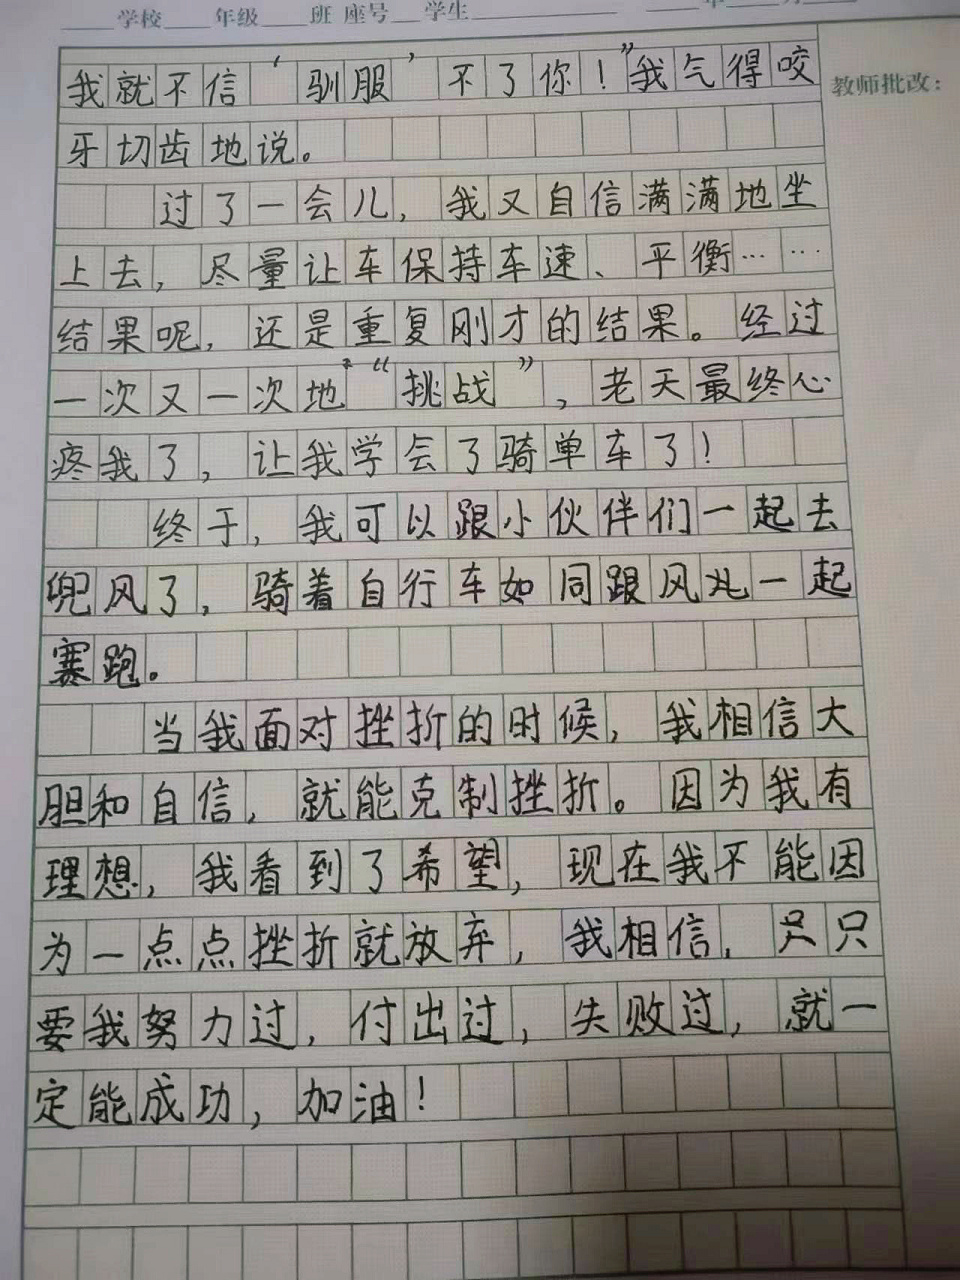 学校 年级 班 座号 学生
教师批改：
我就不信‘驯服’不了你！”我气得咬
牙切齿地说。
过了一会儿，我又自信满满地坐
上去，尽量让车保持车速、平衡……
结果呢，还是重复刚才的结果。经过
一次又一次地“挑战”，老天最终心
疼我了，让我学会了骑单车了！
终于，我可以跟小伙伴们一起去
兜风了，骑着自行车如同跟风儿一起
赛跑。
当我面对挫折的时候，我相信大
胆和自信，就能克制挫折。因为我有
理想，我看到了希望，现在我不能因
为一点点挫折就放弃，我相信，只只
要我努力过，付出过，失败过，就一
定能成功，加油！